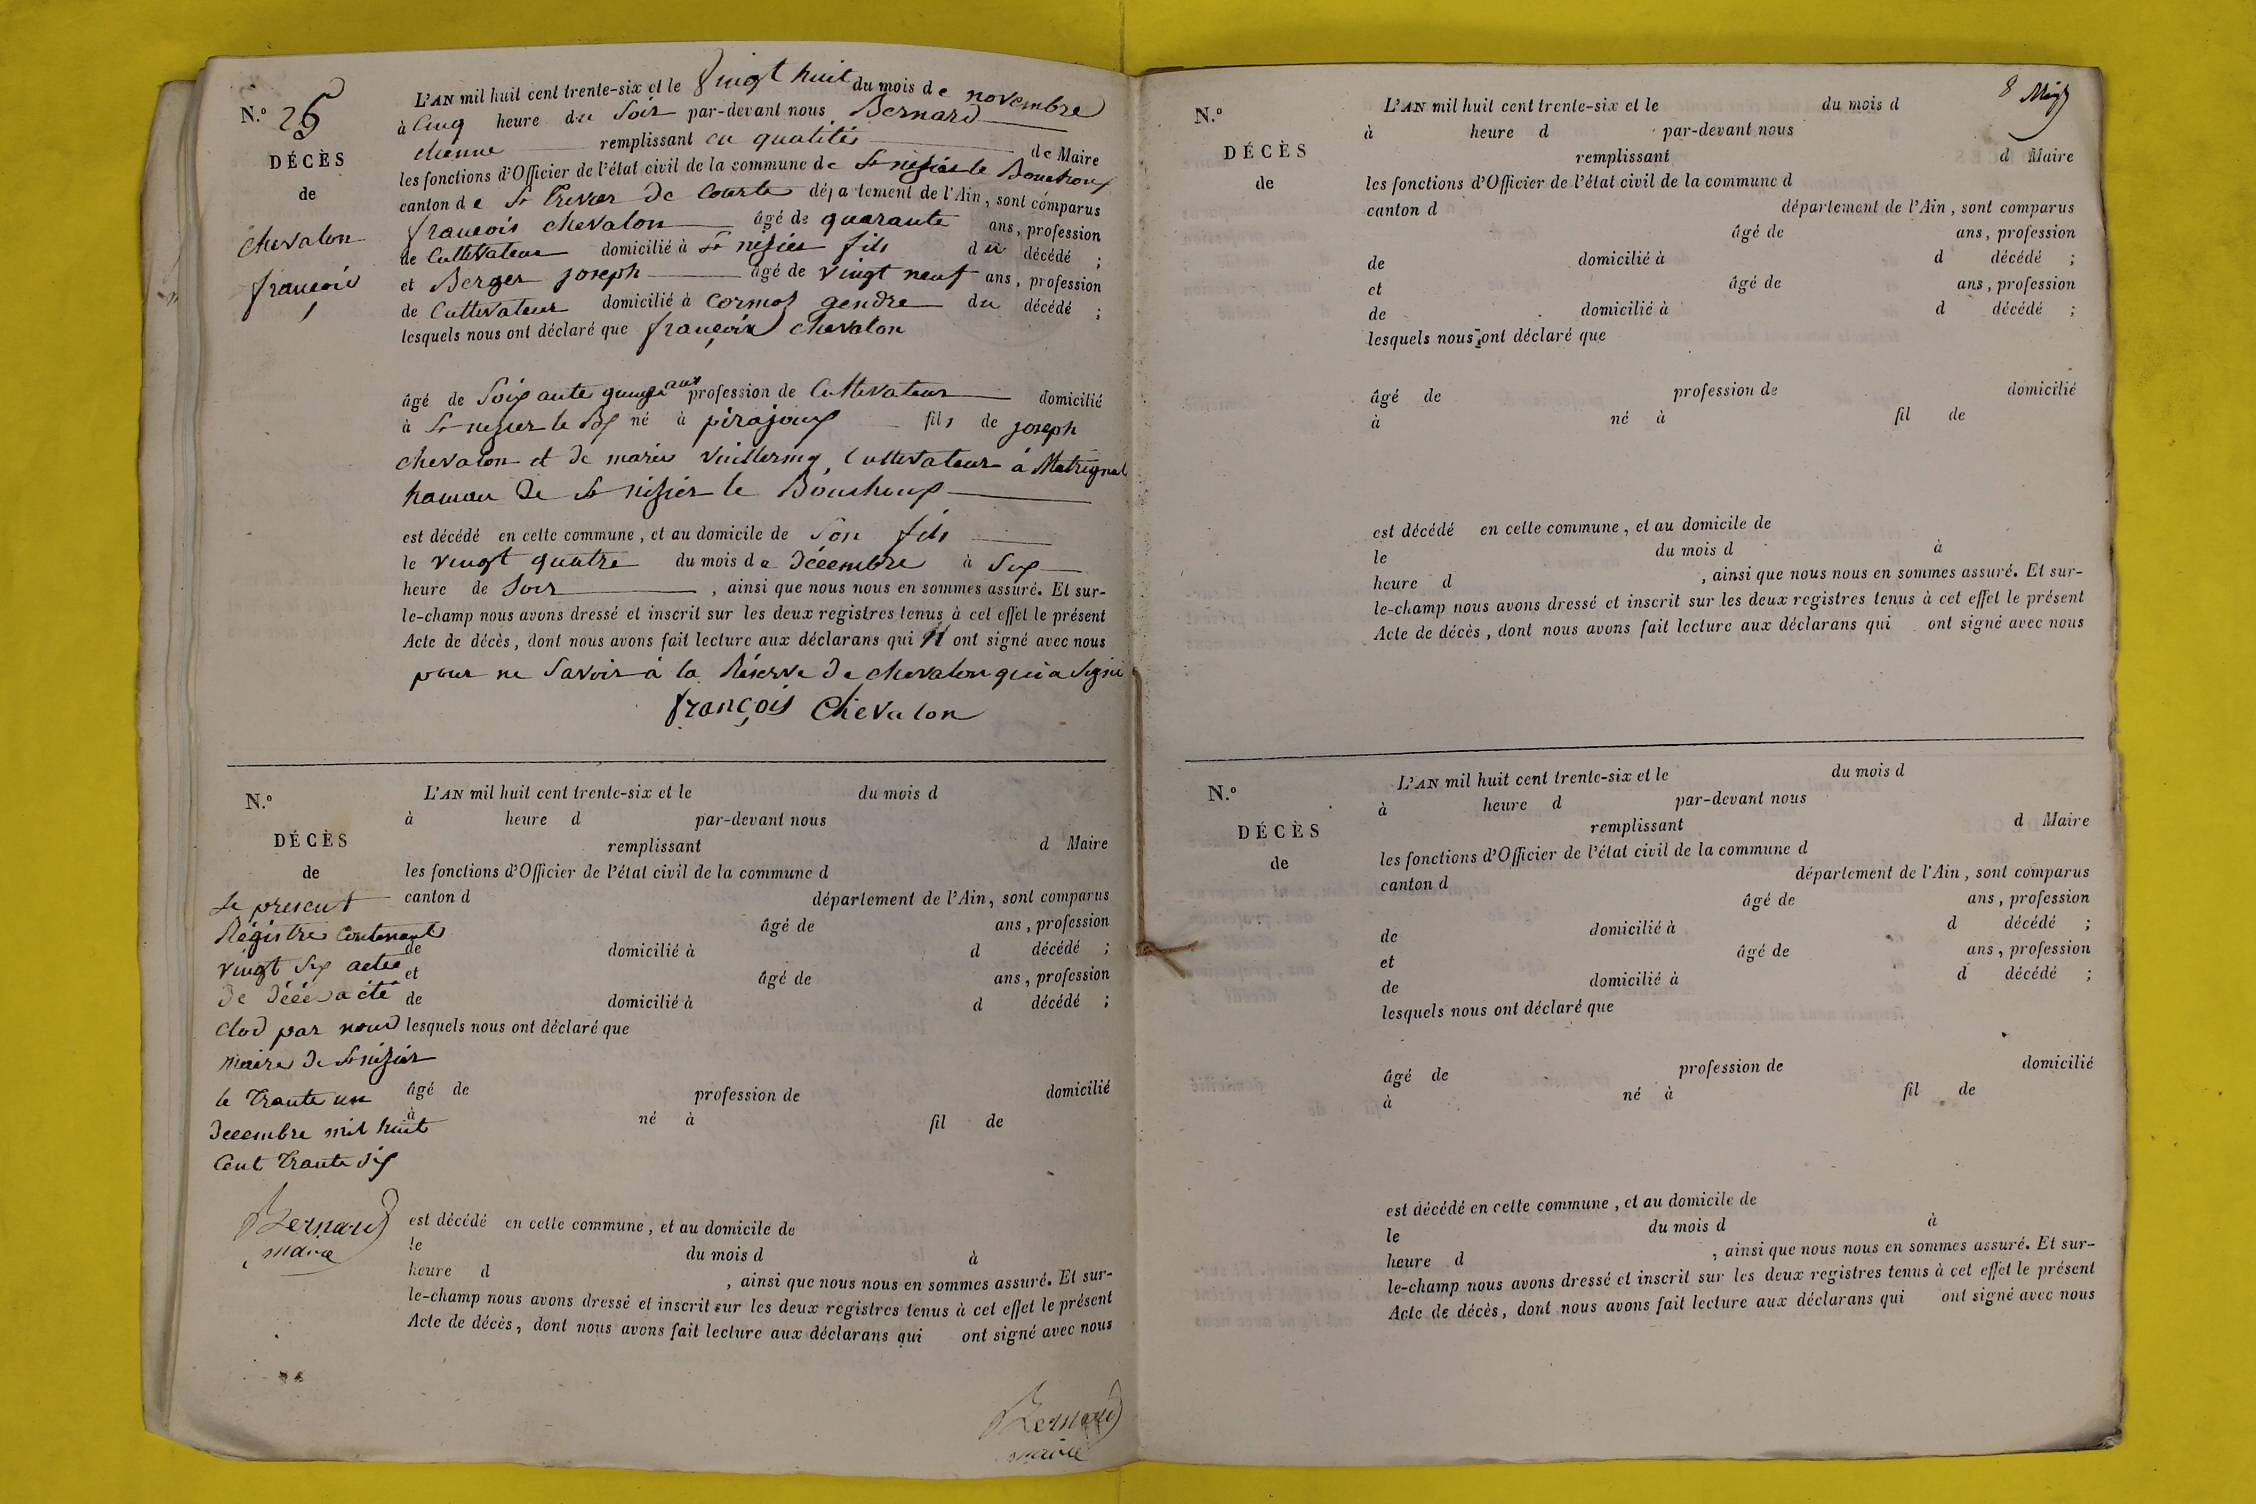 N.° 26
DÉCÈS
de
chevalon
francois
L'AN mil huit cent trente-six et le vingt huit du mois de novembre
à Cinq heure du Soir par-devant nous Bernard
remplissant en qualités de Maire
les fonctions d'Officier de l'état civil de la commune de St nizier le Bouchoux
canton de St Trivier de Courte département de l'Ain, sont comparus
francois chevalon âgé de quarante ans, profession
de Cultivateur domicilié à St nizier fils du décédé ;
et Berger joseph âgé de vingt neuf ans, profession
de Cultivateur domicilié à Cormoz gendre du décédé ;
lesquels nous ont déclaré que françois chevalon
âgé de Soixante quinze ans profession de Cultivateur domicilié
à St nizier le Bx né à pirajoux fils de joseph
chevalon et de marie Vuillermy, Cultivateur à
hamau de St nizier le Bouchoux
est décédé en cette commune, et au domicile de Son fils
le vingt quatre du mois de Décembre à Six
heure de Soir, ainsi que nous nous en sommes assuré. Et sur-
le-champ nous avons dressé et inscrit sur les deux registres tenus à cet effet le présent
Acte de décès, dont nous avons fait lecture aux déclarans qui n ont signé avec nous
pour ne Savoir à la Réserve de chevalon qui a Signé
françois chevalon
N.°
DÉCÈS
de
Le present
Régistre Contenant
vingt Six actes
de décès a été
clos par nous
maire de St nizier
le Trante un
Decembre mil huit
Cent Trante Six
Bernard
maire
L'AN mil huit cent trente-six et le du mois d
à heure d par-devant nous
remplissant d Maire
les fonctions d'Officier de l'état civil de la commune d
canton d département de l'Ain, sont comparus
âgé de ans, profession
de domicilié à d décédé ;
et âgé de ans, profession
de domicilié à d décédé ;
lesquels nous ont déclaré que
âgé de profession de domicilié
à né à fil de
est décédé en cette commune, et au domicile de
le du mois d à
heure d , ainsi que nous nous en sommes assuré. Et sur-
le-champ nous avons dressé et inscrit sur les deux registres tenus à cet effet le présent
Acte de décès, dont nous avons fait lecture aux déclarans qui ont signé avec nous
Bernard
maire
8
N.°
DÉCÈS
de
L'AN mil huit cent trente-six et le du mois d
à heure d par-devant nous
remplissant d Maire
les fonctions d'Officier de l'état civil de la commune d
canton d département de l'Ain, sont comparus
âgé de ans, profession
de domicilié à d décédé ;
et âgé de ans, profession
de domicilié à d décédé ;
lesquels nous ont déclaré que
âgé de profession de domicilié
à né à fil de
est décédé en cette commune, et au domicile de
le du mois d à
heure d , ainsi que nous nous en sommes assuré. Et sur-
le-champ nous avons dressé et inscrit sur les deux registres tenus à cet effet le présent
Acte de décès, dont nous avons fait lecture aux déclarans qui ont signé avec nous
N.°
DÉCÈS
de
L'AN mil huit cent trente-six et le du mois d
à heure d par-devant nous
remplissant d Maire
les fonctions d'Officier de l'état civil de la commune d
canton d département de l'Ain, sont comparus
âgé de ans, profession
de domicilié à d décédé ;
et âgé de ans, profession
de domicilié à d décédé ;
lesquels nous ont déclaré que
âgé de profession de domicilié
à né à fil de
est décédé en cette commune, et au domicile de
le du mois d à
heure d , ainsi que nous nous en sommes assuré. Et sur-
le-champ nous avons dressé et inscrit sur les deux registres tenus à cet effet le présent
Acte de décès, dont nous avons fait lecture aux déclarans qui ont signé avec nous